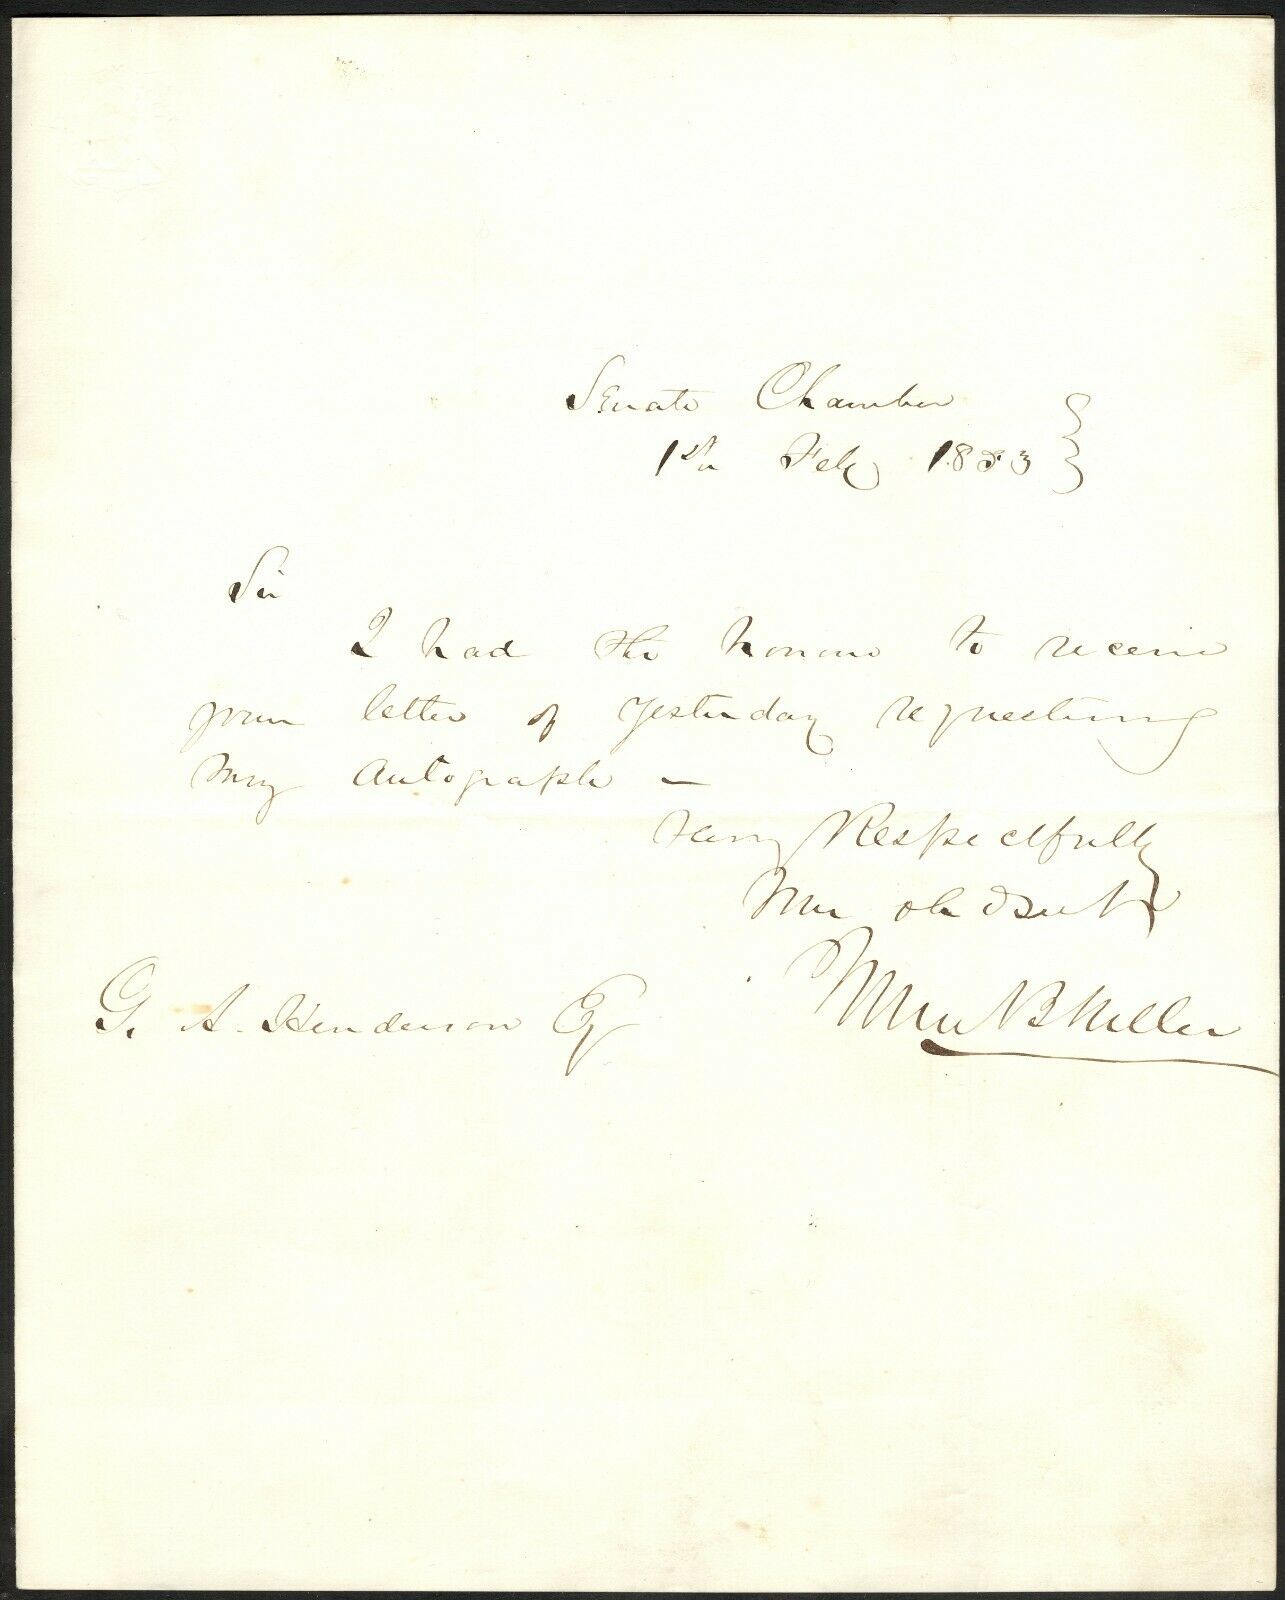 Senate Chamber
1st Feby 1853
Sir
I had the honour to receive
your letter of Yesterday requesting
my Autograph —
Very Respectfully
Your ob Servt
G. A. Henderson Esq
Miller